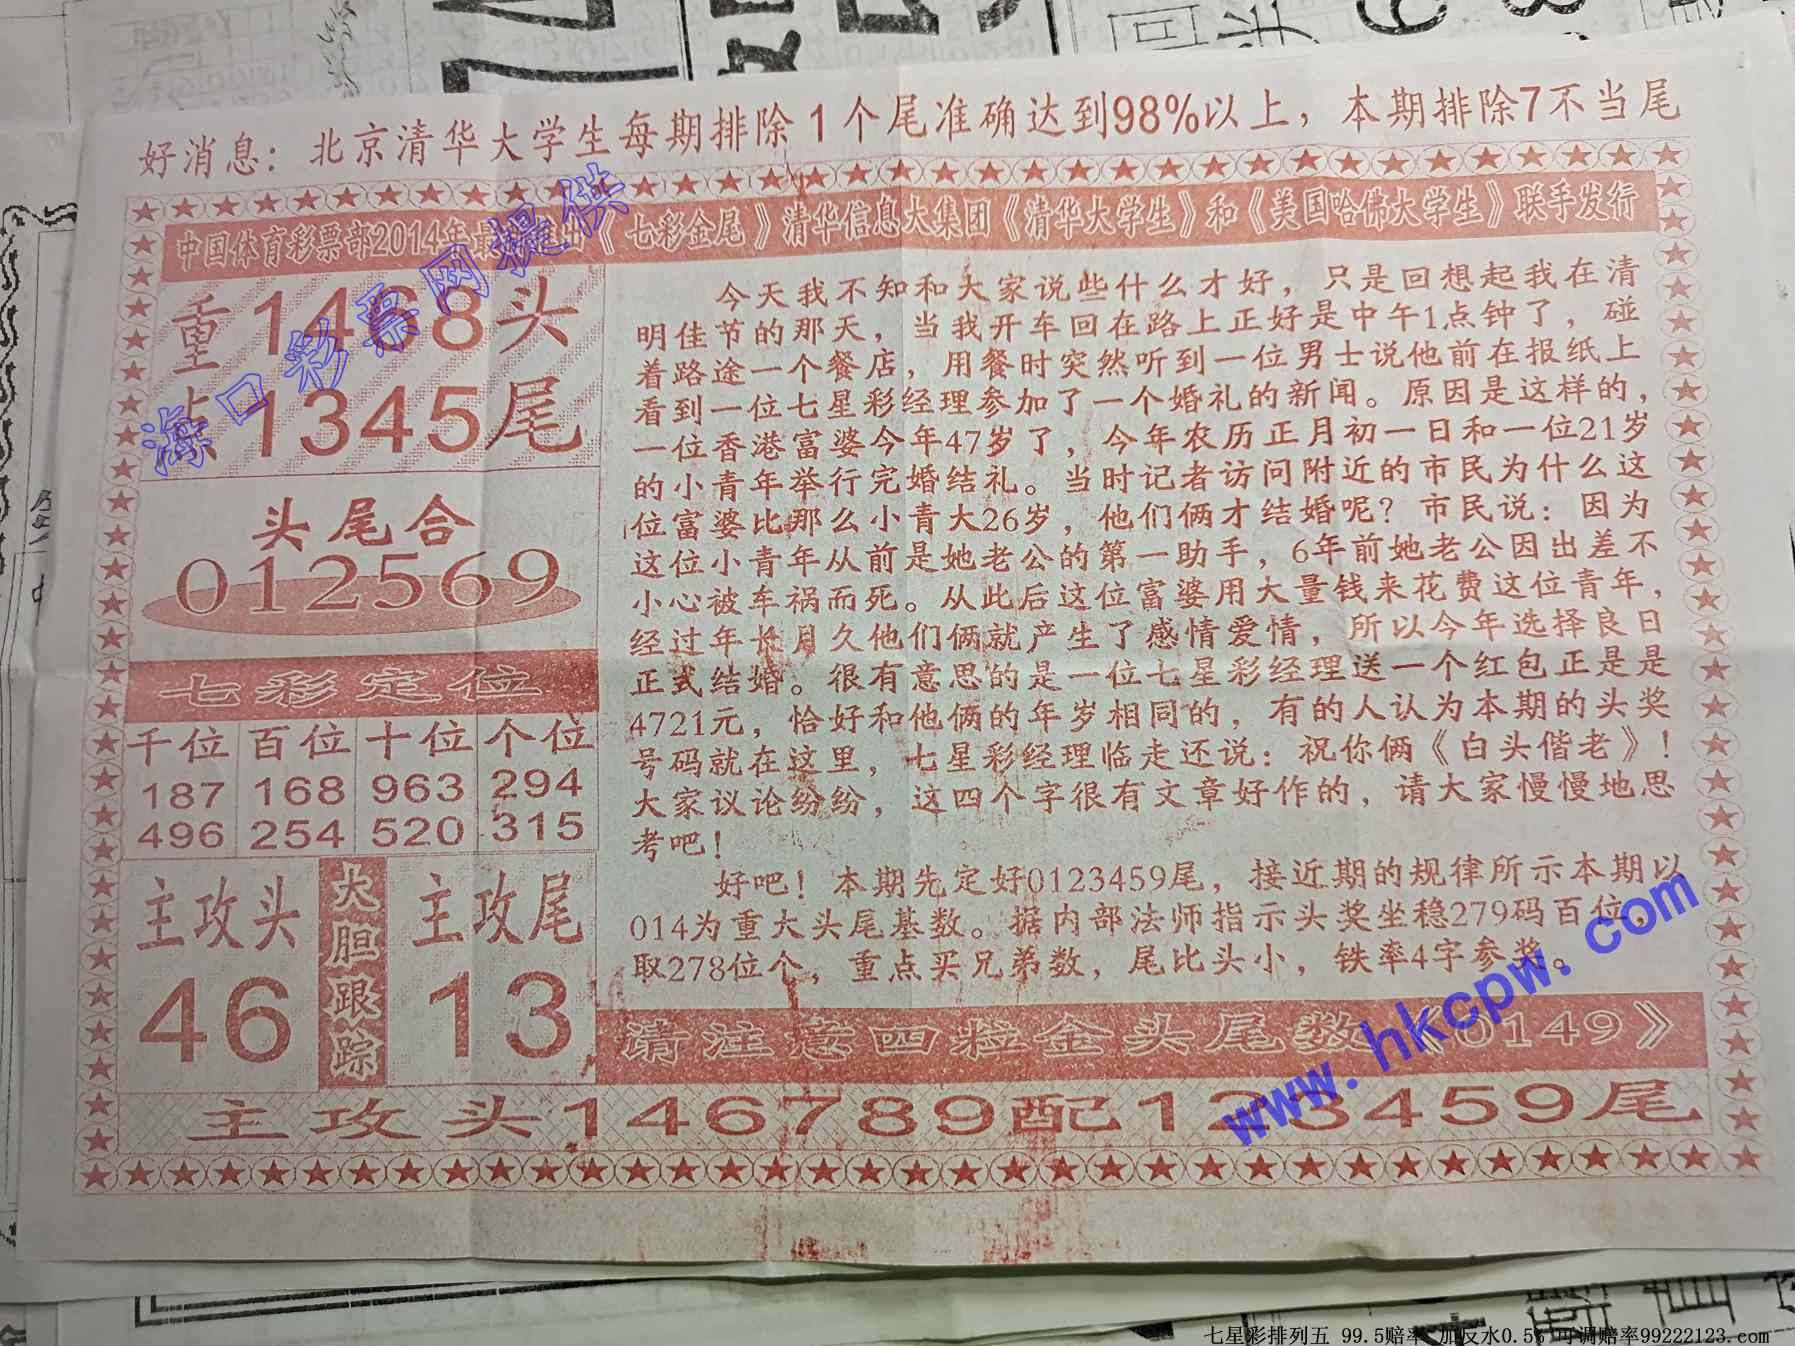 好消息：北京清华大学生每期排除1个尾准确达到98%以上，本期排除7不当尾
中国体育彩票部2014年最 推出《七彩金尾》清华信息大集团《清华大学生》和《美国哈佛大学生》联手发行
重点
1468头
1345尾
头尾合
012569
七彩定位
千位 百位 十位 个位
187 168 963 294
496 254 520 315
主攻头
46
大胆跟踪
主攻尾
13
今天我不知和大家说些什么才好，只是回想起我在清
明佳节的那天，当我开车回在路上正好是中午1点钟了，碰
着路途一个餐店，用餐时突然听到一位男士说他前在报纸上
看到一位七星彩经理参加了一个婚礼的新闻。原因是这样的，
一位香港富婆今年47岁了，今年农历正月初一日和一位21岁
的小青年举行完婚结礼。当时记者访问附近的市民为什么这
位富婆比那么小青大26岁，他们俩才结婚呢？市民说：因为
这位小青年从前是她老公的第一助手，6年前她老公因出差不
小心被车祸而死。从此后这位富婆用大量钱来花费这位青年，
经过年长月久他们俩就产生了感情爱情，所以今年选择良日
正式结婚。很有意思的是一位七星彩经理送一个红包正是是
4721元，恰好和他俩的年岁相同的，有的人认为本期的头奖
号码就在这里，七星彩经理临走还说：祝你俩《白头偕老》！
大家议论纷纷，这四个字很有文章好作的，请大家慢慢地思
考吧！
好吧！本期先定好0123459尾，接近期的规律所示本期以
014为重大头尾基数。据内部法师指示头奖坐稳279码百位，
取278位个，重点买兄弟数，尾比头小，铁率4字参奖。
请注意四粒金头尾数《0149》
主攻头146789配123459尾
海口彩票网提供
www.hkcpw.com
七星彩排列五 99.5赔率 加反水0.5% 可调赔率99222123.com